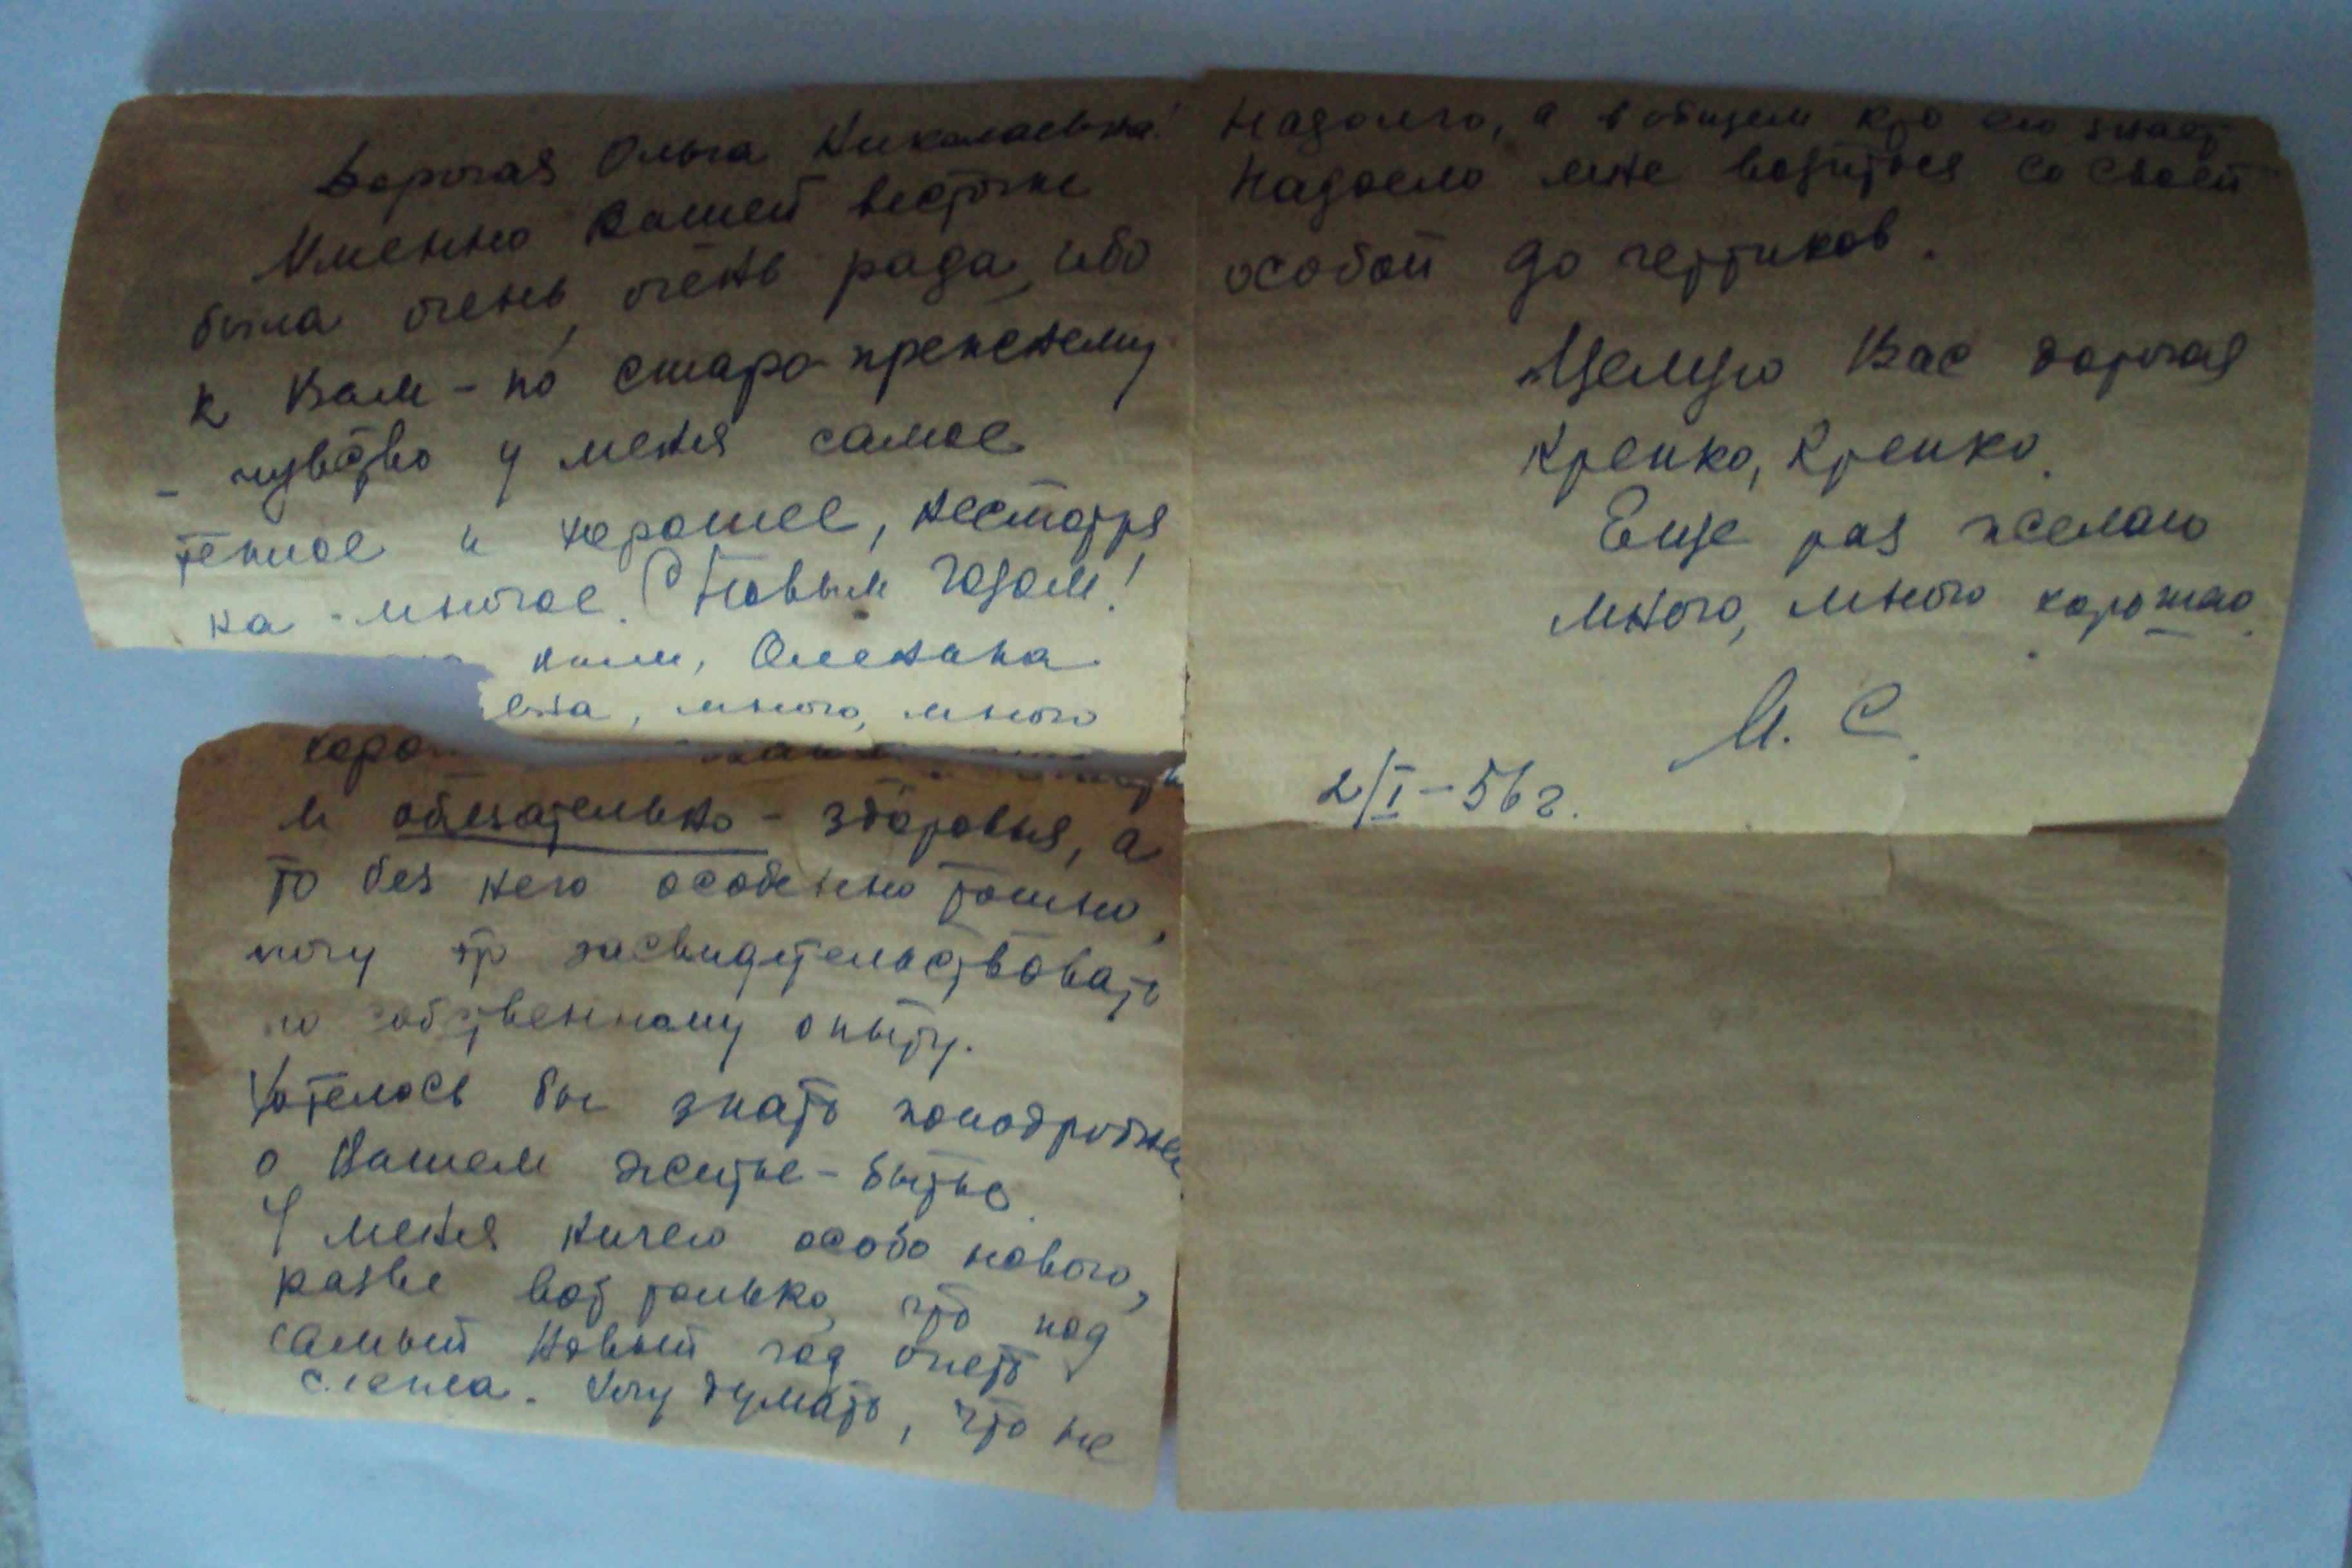 Дорогая Ольга Николаевна!
Именно Вашей весточке
была очень, очень рада, ибо
к Вам - по старо-прежнему
- чувство у меня самое
теплое и хорошее, несмотря
на - многое. С Новым Годом!
евна, много, много
хоро
и обязательно - здоровья, а
то без него особенно тошно,
могу это засвидетельствовать
по собственному опыту.
Хотелось бы знать поподробнее
о Вашем житье-бытье.
У меня ничего особо нового,
разве вот только, что под
самый Новый год опять
слегла. Хочу думать, что не
надолго, а в общем кто его знает.
Надоело мне возиться со своей
особой до чертиков.
Целую Вас дорогая
крепко, крепко.
Еще раз желаю
много, много хорошего.
И. С.
2/I-56 г.